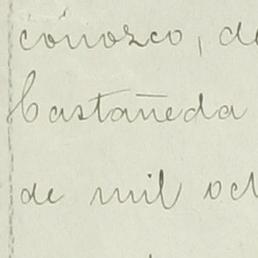 conozco, de
Castañeda
de mil och